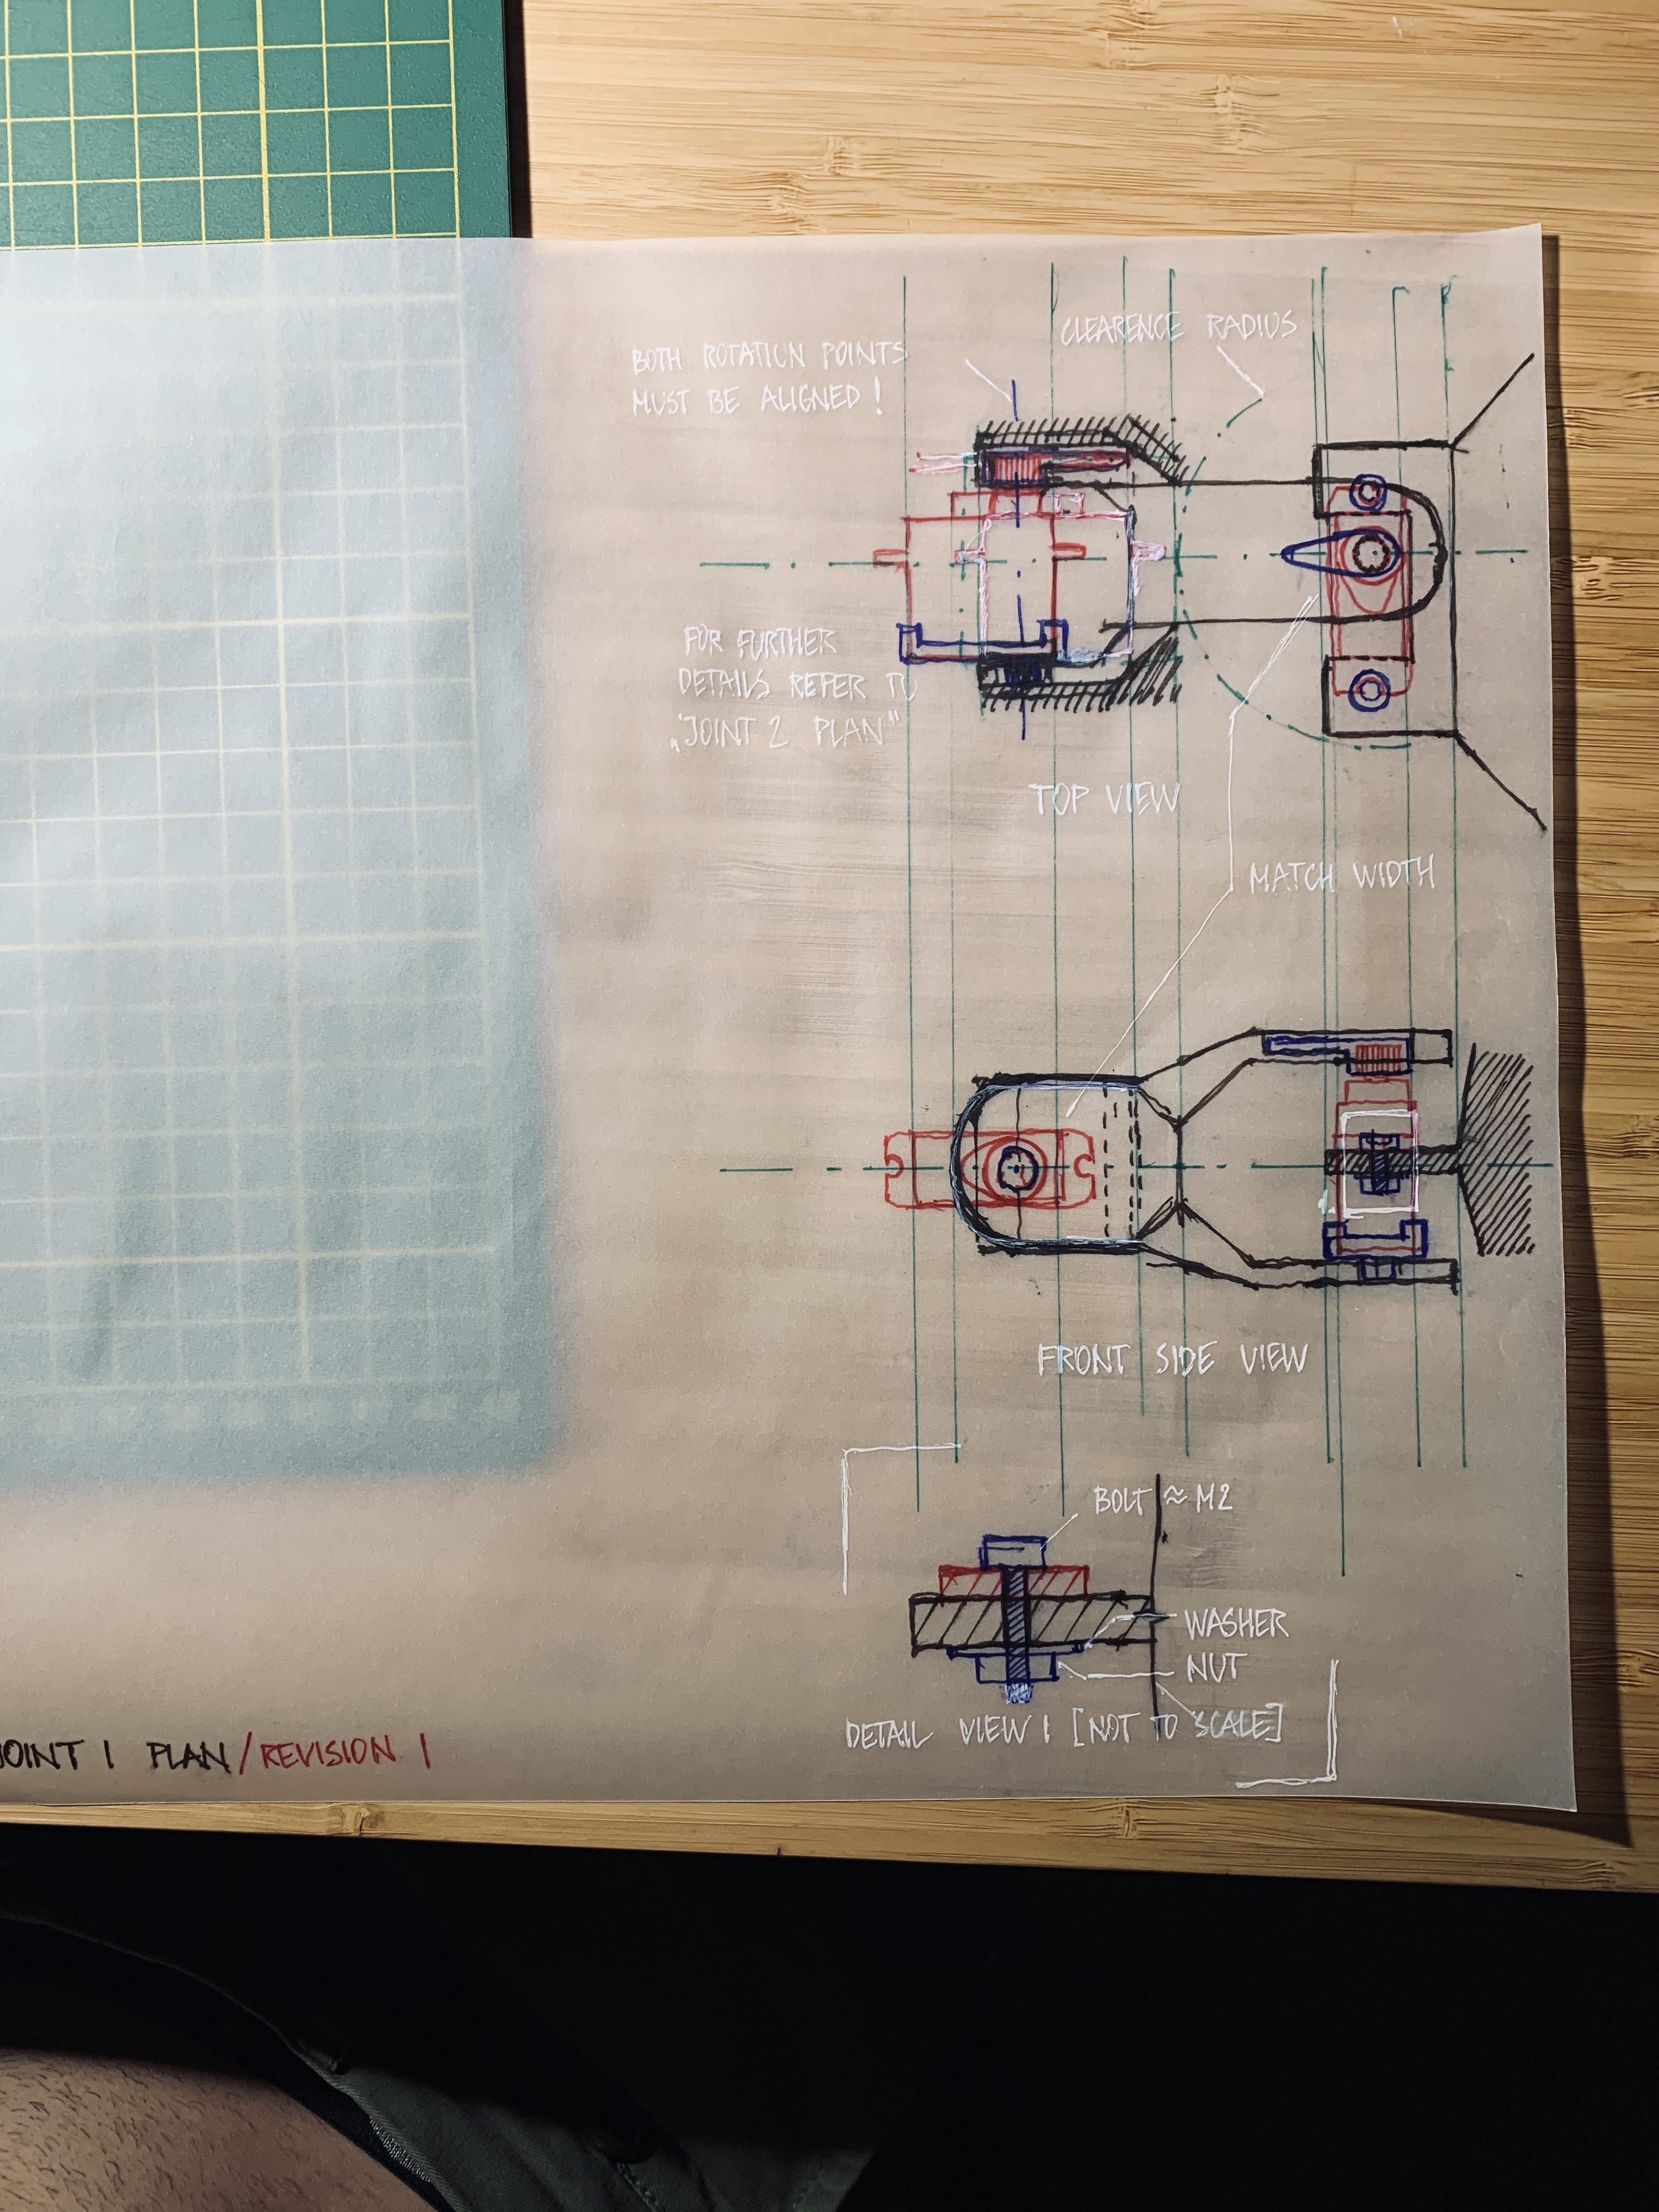 CLEARENCE RADIUS
BOTH ROTATION POINTS
MUST BE ALIGNED!
FOR FURTHER
DETAILS REFER TO
„JOINT 2 PLAN"
TOP VIEW
MATCH WIDTH
FRONT SIDE VIEW
BOLT ≈ M2
WASHER
NUT
DETAIL VIEW 1 [NOT TO SCALE]
JOINT 1 PLAN/REVISION 1